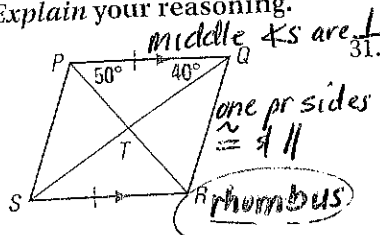 Explain your reasoning.
middle ∡s are ⊥
31.
P Q
50° 40°
one pr sides
≅ & ∥
T
S R
rhombus